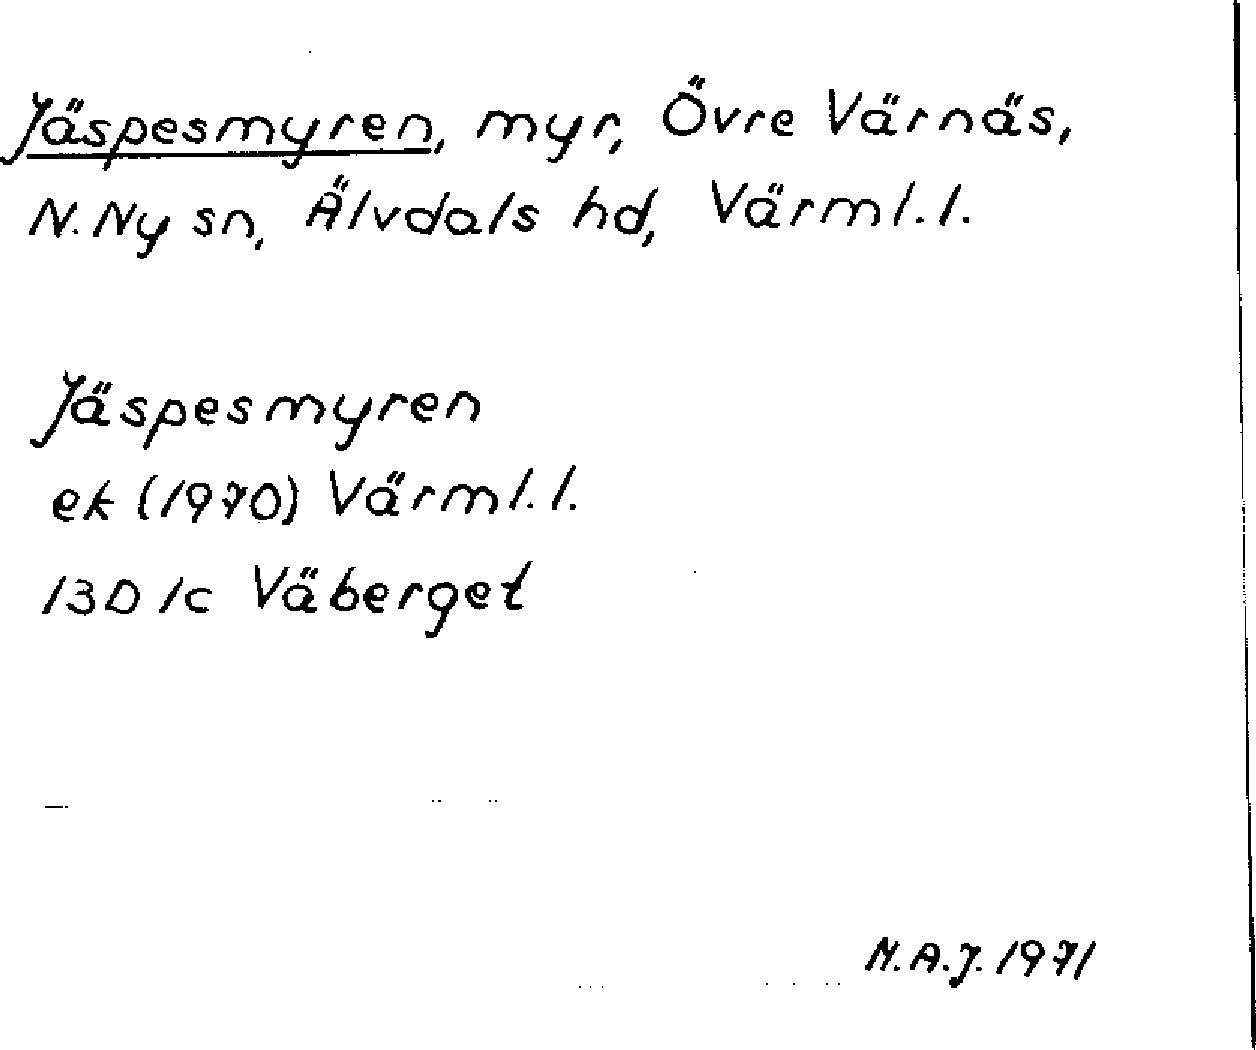 Jäspesmyren, myr, Övre Värnäs,
N. Ny sn, Älvdals hd, Värml. l.
Jäspesmyren
ek (1970) Värml. l.
13D 1c Väberget
M.A.J. 1971